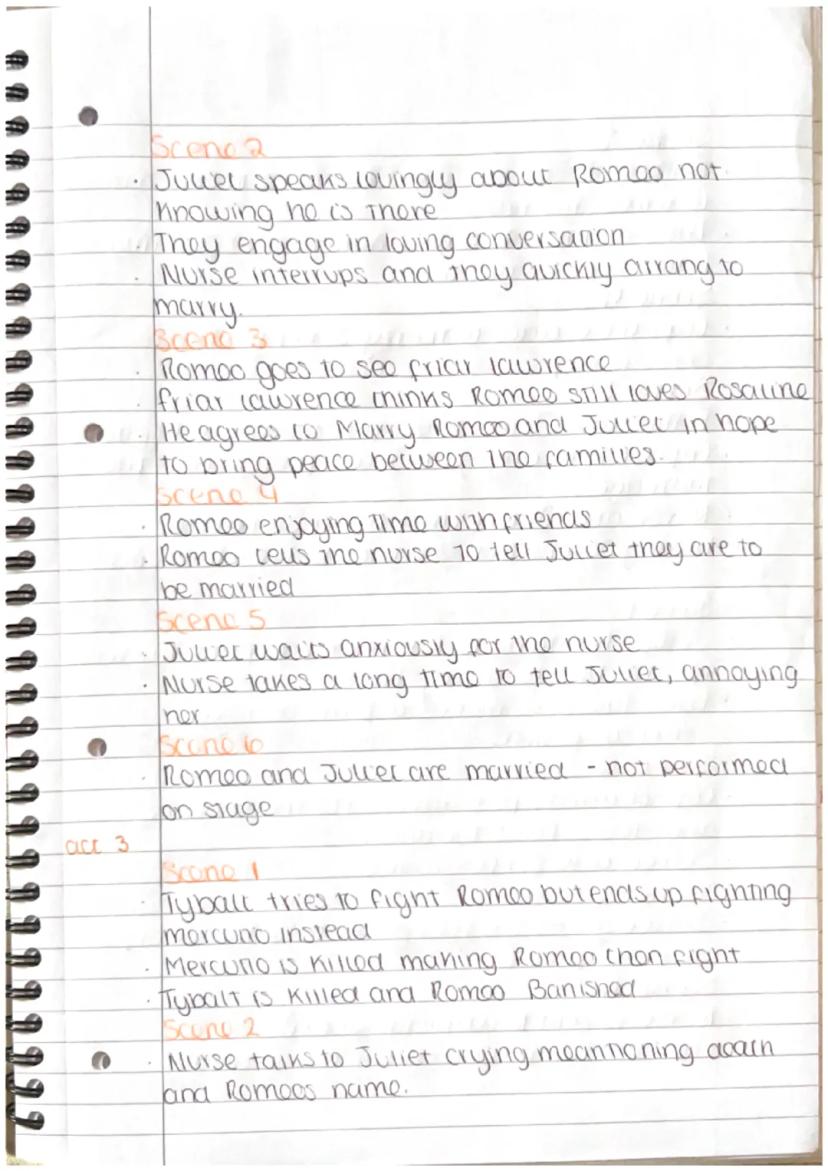 Scene 2
· Juliet speaks lovingly about Romeo not
knowing he is there
· They engage in loving conversation
· Nurse interrups and they quickly arrang to
marry.
Scene 3
· Romeo goes to see friar lawrence
· friar lawrence thinks Romeo still loves Rosaline
· He agrees to Marry Romeo and Juliet in hope
to bring peace between the families.
Scene 4
· Romeo enjoying time with friends
· Romeo tells the nurse to tell Juliet they are to
be married
Scene 5
· Juliet waits anxiously for the nurse
· Nurse takes a long time to tell Juliet, annoying
her
Scene 6
· Romeo and Juliet are married - not performed
on stage
act 3
Scene 1
· Tybalt tries to fight Romeo but ends up fighting
mercutio instead
· Mercutio is killed making Romeo then fight
· Tybalt is killed and Romeo Banished
Scene 2
· Nurse talks to Juliet crying meantioning death
and Romeos name.